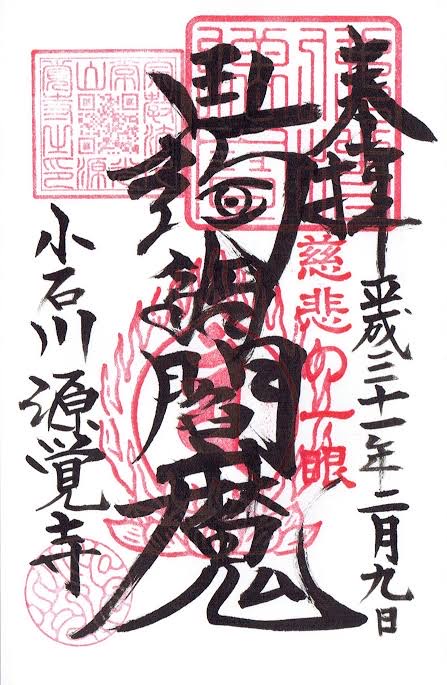 奉拝
平成三十一年二月九日
慈悲の一眼
蒟蒻閻魔
小石川 源覚寺